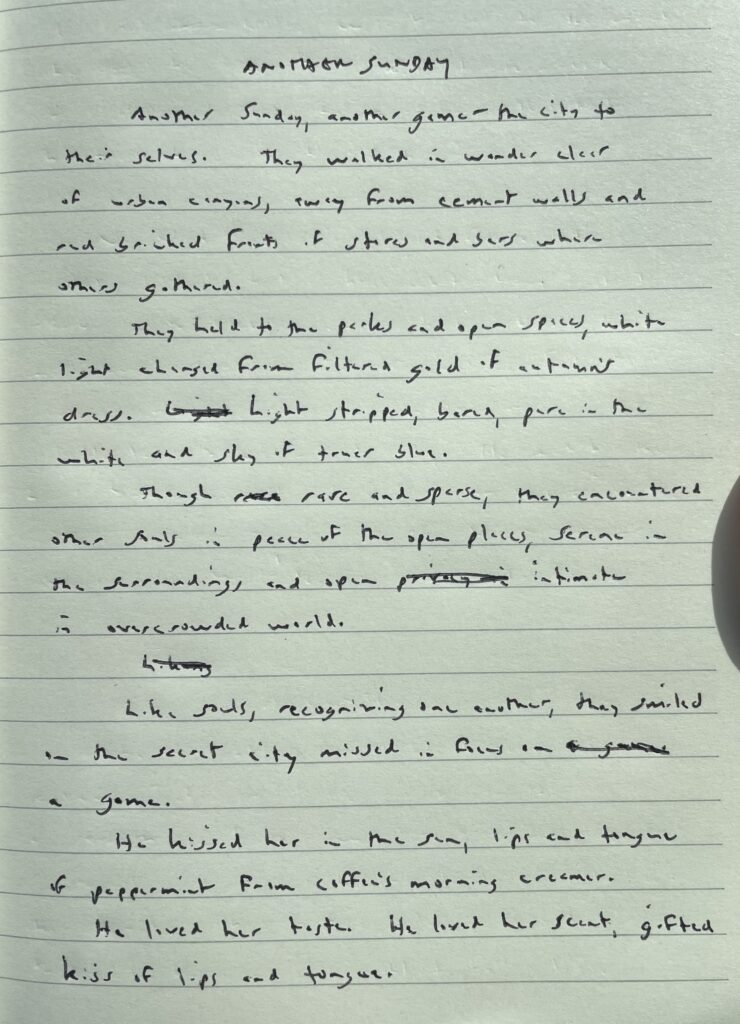 ANOTHER SUNDAY
Another Sunday, another game - the city to
their selves. They walked in wonder clear
of urban canyons, away from cement walls and
red bricked fronts of stores and bars where
others gathered.
They held to the parks and open spaces, white
light changed from filtered gold of autumn's
dress. Light Light stripped, bared, pure in the
white and sky of truer blue.
Though rare and sparse, they encountered
other souls in peace of the open places, serene in
the surroundings and open privacy in intimate
in overcrowded world.
Like souls, recognizing one another, they smiled
on the secret city missed in focus on a game
a game.
He kissed her in the sun, lips and tongue
of peppermint from coffee's morning creamer.
He loved her taste. He loved her scent, gifted
kiss of lips and tongue.